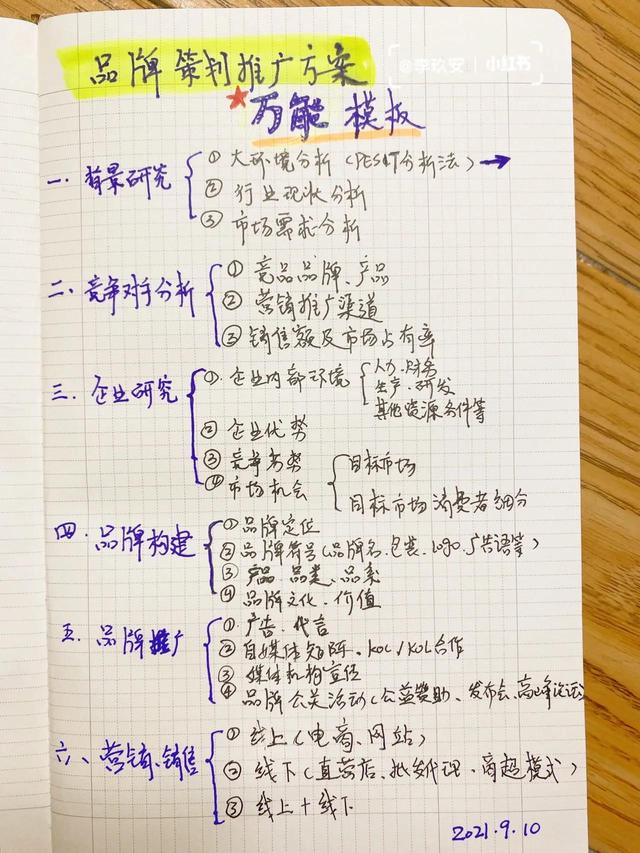 品牌策划推广方案
@李玖安 | 小红书
万能模板
一. 背景研究
① 大环境分析(PEST分析法)→
② 行业现状分析
③ 市场需求分析
二. 竞争对手分析
① 竞品品牌、产品
② 营销推广渠道
③ 销售额及市场占有率
三. 企业研究
①. 企业内部环境
人力.财务
生产.研发
其他资源条件等
② 企业优势
③ 竞争劣势
④ 市场机会
目标市场
目标市场消费者细分
四. 品牌构建
① 品牌定位
② 品牌符号(品牌名.包装.logo.广告语等)
③ 产品 品类、品系
④ 品牌文化、价值
五. 品牌推广
①. 广告.代言
② 自媒体矩阵、KOC/KOL合作
③ 媒体机构宣传
④ 品牌公关活动(公益赞助、发布会、高峰论坛)
六、营销、销售
① 线上(电商、网站)
② 线下(直营店、批发代理、商超模式)
③ 线上+线下
2021.9.10